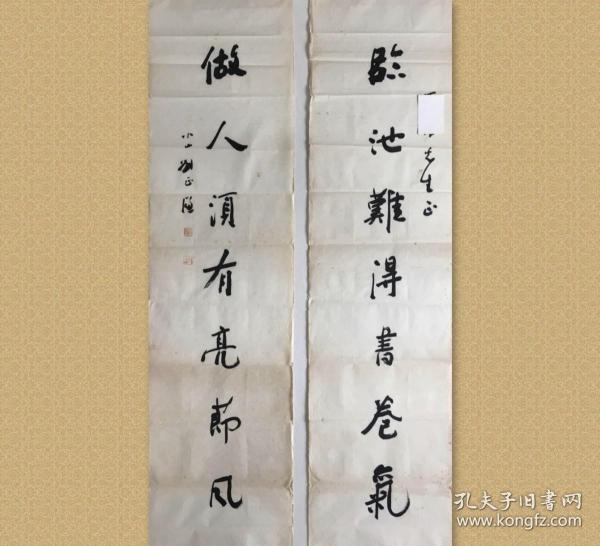 臨池難得書卷氣
先生正
做人須有亮節風
孔夫子旧书网
www.kongfz.com